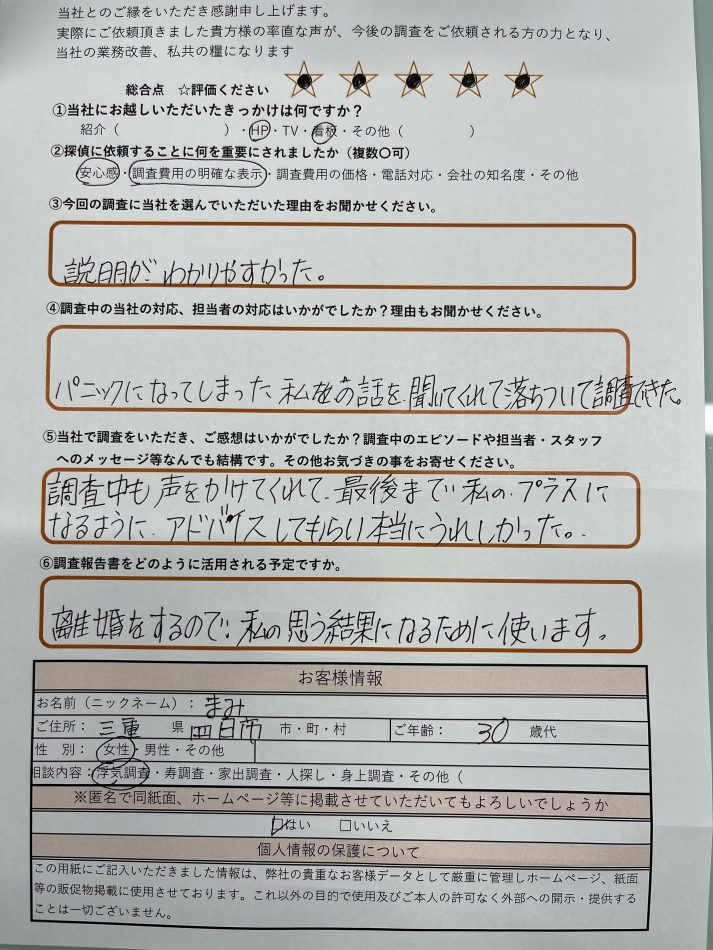 当社とのご縁をいただき感謝申し上げます。
実際にご依頼頂きました貴方様の率直な声が、今後の調査をご依頼される方の力となり、
当社の業務改善、私共の糧になります
総合点　☆評価ください
①当社にお越しいただいたきっかけは何ですか？
紹介（　　　　　　　）・HP・TV・看板・その他（　　　　）
②探偵に依頼することに何を重要にされましたか（複数〇可）
安心感・調査費用の明確な表示・調査費用の価格・電話対応・会社の知名度・その他
③今回の調査に当社を選んでいただいた理由をお聞かせください。
説明が、わかりやすかった。
④調査中の当社の対応、担当者の対応はいかがでしたか？理由もお聞かせください。
パニックになってしまった私の話を、聞いてくれて落ちついて調査できた。
⑤当社で調査をいただき、ご感想はいかがでしたか？調査中のエピソードや担当者・スタッフ
へのメッセージ等なんでも結構です。その他お気づきの事をお寄せください。
調査中も声をかけてくれて、最後まで私の、プラスに
なるように、アドバイスしてもらい本当にうれしかった。
⑥調査報告書をどのように活用される予定ですか。
離婚をするので、私の思う結果になるために使います。
お客様情報
お名前（ニックネーム）：まみ
ご住所： 三重 県 四日市 市・町・村 ご年齢： 30 歳代
性　別： 女性・男性・その他
相談内容：浮気調査・寿調査・家出調査・人探し・身上調査・その他（
※匿名で同紙面、ホームページ等に掲載させていただいてもよろしいでしょうか
☑はい　□いいえ
個人情報の保護について
この用紙にご記入いただきました情報は、弊社の貴重なお客様データとして厳重に管理しホームページ、紙面
等の販促物掲載に使用させております。これ以外の目的で使用及びご本人の許可なく外部への開示・提供する
ことは一切ございません。